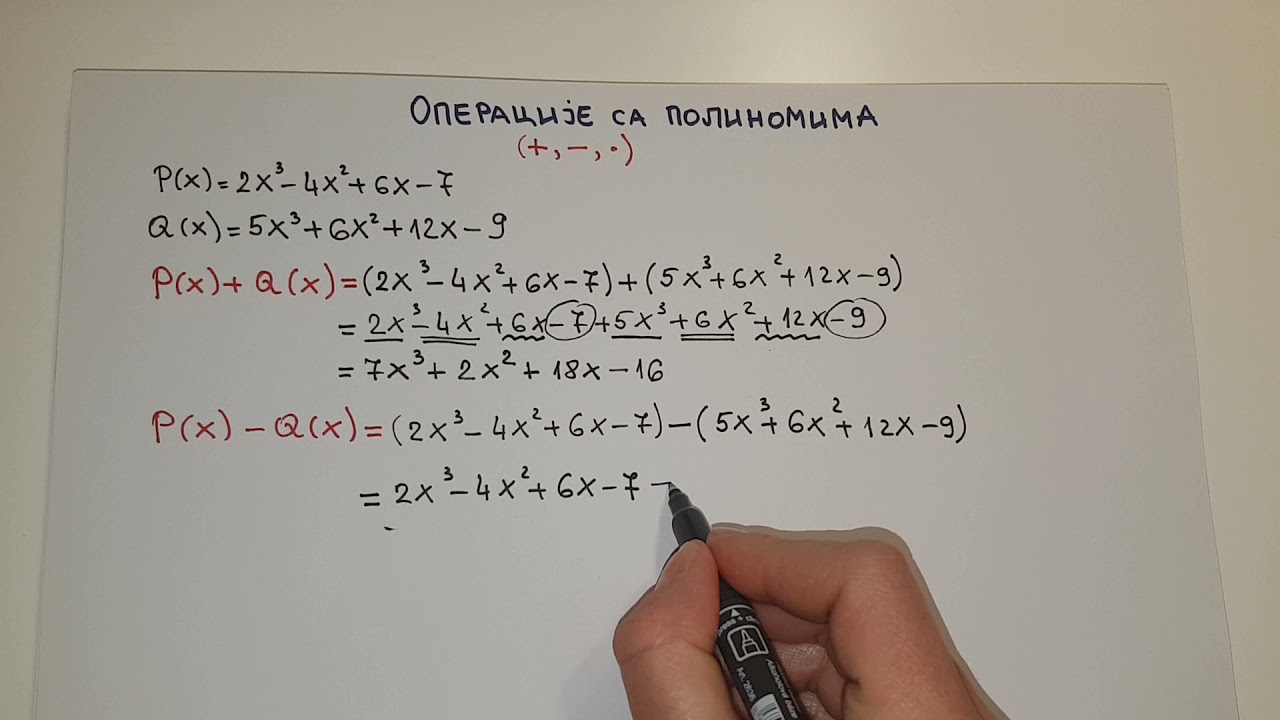 ОПЕРАЦИЈЕ СА ПОЛИНОМИМА
(+, −, ·)
P(x) = 2x³ − 4x² + 6x − 7
Q(x) = 5x³ + 6x² + 12x − 9
P(x) + Q(x) = (2x³ − 4x² + 6x − 7) + (5x³ + 6x² + 12x − 9)
= 2x³ − 4x² + 6x − 7 + 5x³ + 6x² + 12x − 9
= 7x³ + 2x² + 18x − 16
P(x) − Q(x) = (2x³ − 4x² + 6x − 7) − (5x³ + 6x² + 12x − 9)
= 2x³ − 4x² + 6x − 7 −